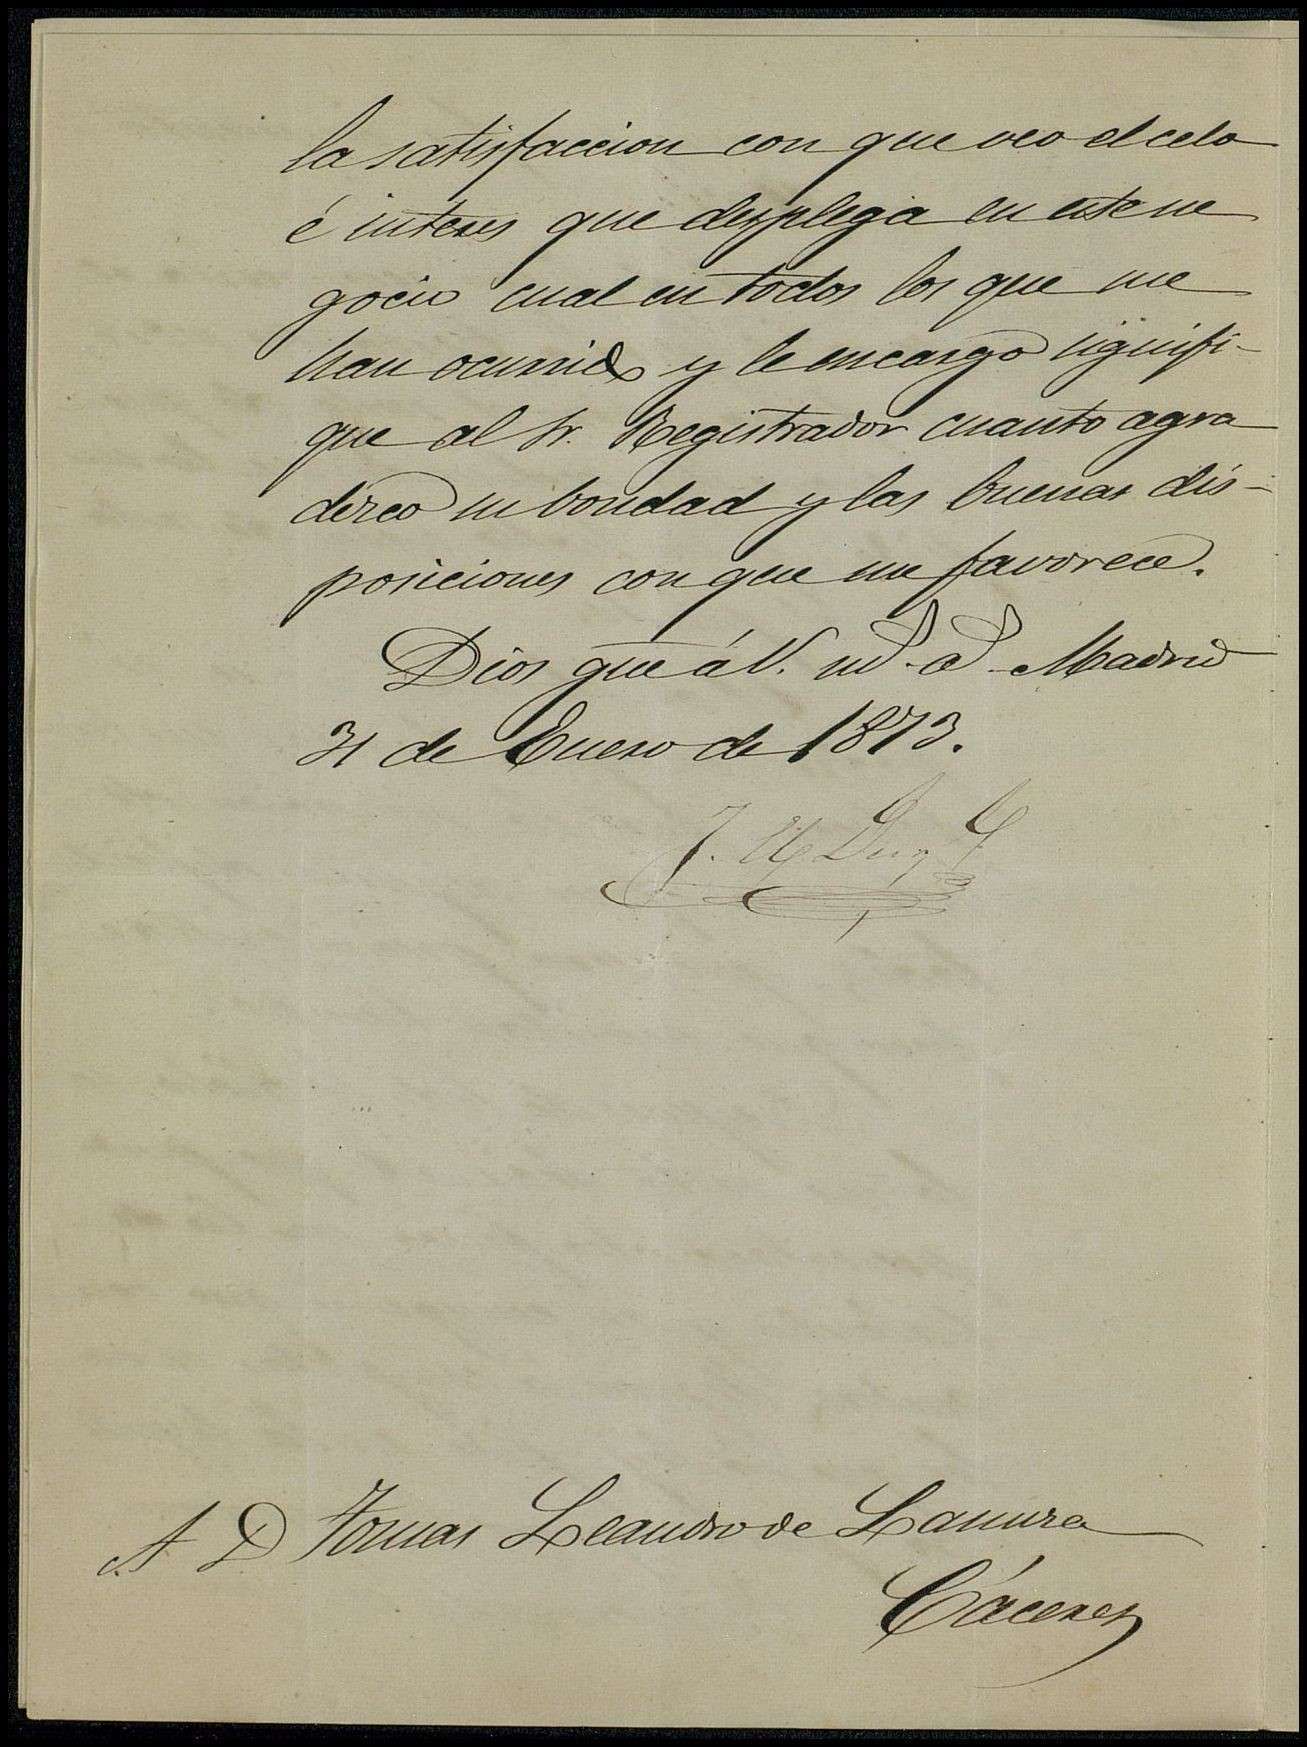 la satisfaccion con que veo el celo
é interes que desplega en este ne
gocio cual en todos los que me
han ocurrido y le encargo signifi-
que al Sr. Registrador cuanto agra
dezco su bondad y las buenas dis-
posiciones con que me favorece.
Dios gue á V. ms. as. Madrid
31 de Enero de 1873.
A D Tomas Leandro de Lamura
Cáceres